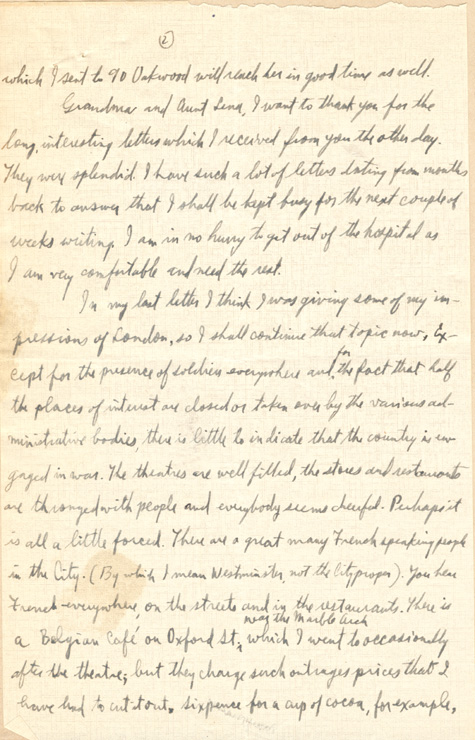 (2)
which I sent to 90 Oakwood will reach her in good time as well.
Grandma and Aunt Lena, I want to thank you for the
long, interesting letters which I received from you the other day.
They were splendid. I have such a lot of letters dating from months
back to answer that I shall be kept busy for the next couple of
weeks writing. I am in no hurry to get out of the hospital as
I am very comfortable and need the rest.
In my last letter I think I was giving some of my im-
pressions of London, so I shall continue that topic now. Ex-
cept for the presence of soldiers everywhere and for the fact that half
the places of interest are closed or taken over by the various ad-
ministrative bodies, there is little to indicate that the country is en-
gaged in war. The theatres are well filled, the stores and restaurants
are thronged with people and everybody seems cheerful. Perhaps it
is all a little forced. There are a great many French speaking people
in the City. (By which I mean Westminster, not the City proper). You hear
French everywhere, on the streets and in the restaurants. There is
a Belgian Café on Oxford St., near the Marble Arch which I went to occasionally
after the theatre; but they charge such outrages prices that I
have had to cut it out. Sixpence for a cup of cocoa, for example,